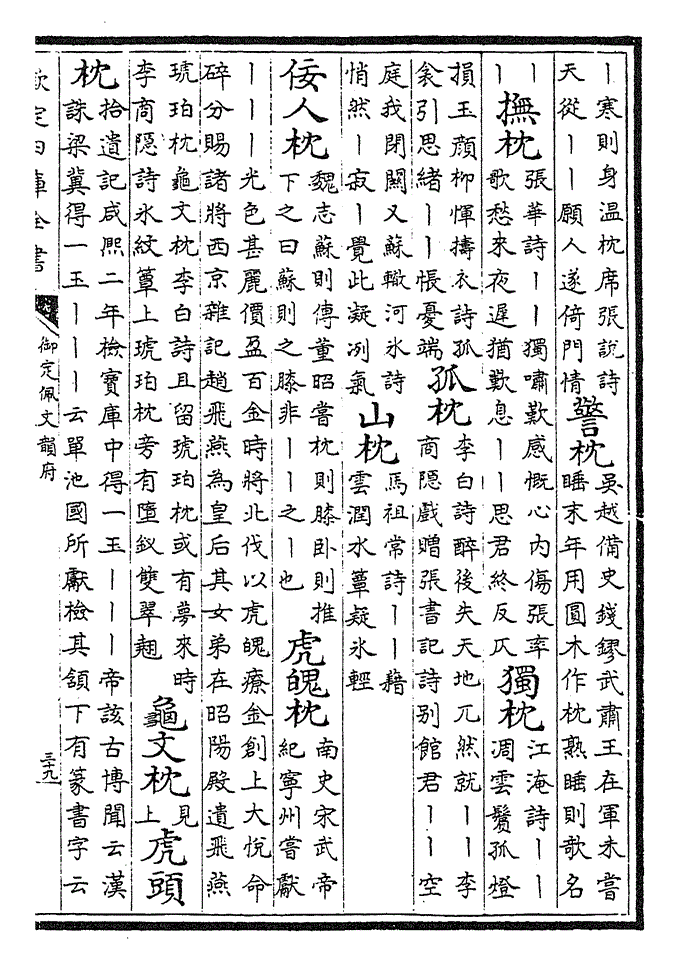 丨寒則身溫枕席張說詩
天從丨丨願人遂倚門情
警枕
吳越備史錢鏐武肅王在軍未嘗
睡末年用圓木作枕熟睡則欹名
丨
丨
撫枕
張華詩丨丨獨嘯歎感慨心內傷張率
歌愁來夜遲猶歎息丨丨思君終反仄
獨枕
江淹詩丨丨
凋雲鬢孤燈
損玉顏柳惲擣衣詩孤
衾引思緒丨丨悵憂端
孤枕
李白詩醉後失天地兀然就丨丨李
商隱戲贈張書記詩別館君丨丨空
庭我閉關又蘇轍河氷詩
悄然丨寂丨覺此凝冽氣
山枕
馬祖常詩丨丨藉
雲潤水簟疑氷輕
佞人枕
魏志蘇則傳董昭嘗枕則膝卧則推
下之曰蘇則之膝非丨丨之丨也
虎魄枕
南史宋武帝
紀寧州嘗獻
丨丨丨光色甚麗價盈百金時將北伐以虎魄療金創上大悅命
碎分賜諸將西京雜記趙飛燕為皇后其女弟在昭陽殿遺飛燕
琥珀枕龜文枕李白詩且留琥珀枕或有夢來時
李商隱詩氷紋簟上琥珀枕旁有墮釵雙翠翹
龜文枕
見
上
虎頭
枕
拾遺記咸熙二年檢寶庫中得一玉丨丨丨帝該古博聞云漢
誅梁冀得一玉丨丨丨云單池國所獻檢其頷下有篆書字云
欽定四庫全書
御定佩文韻府
三十九